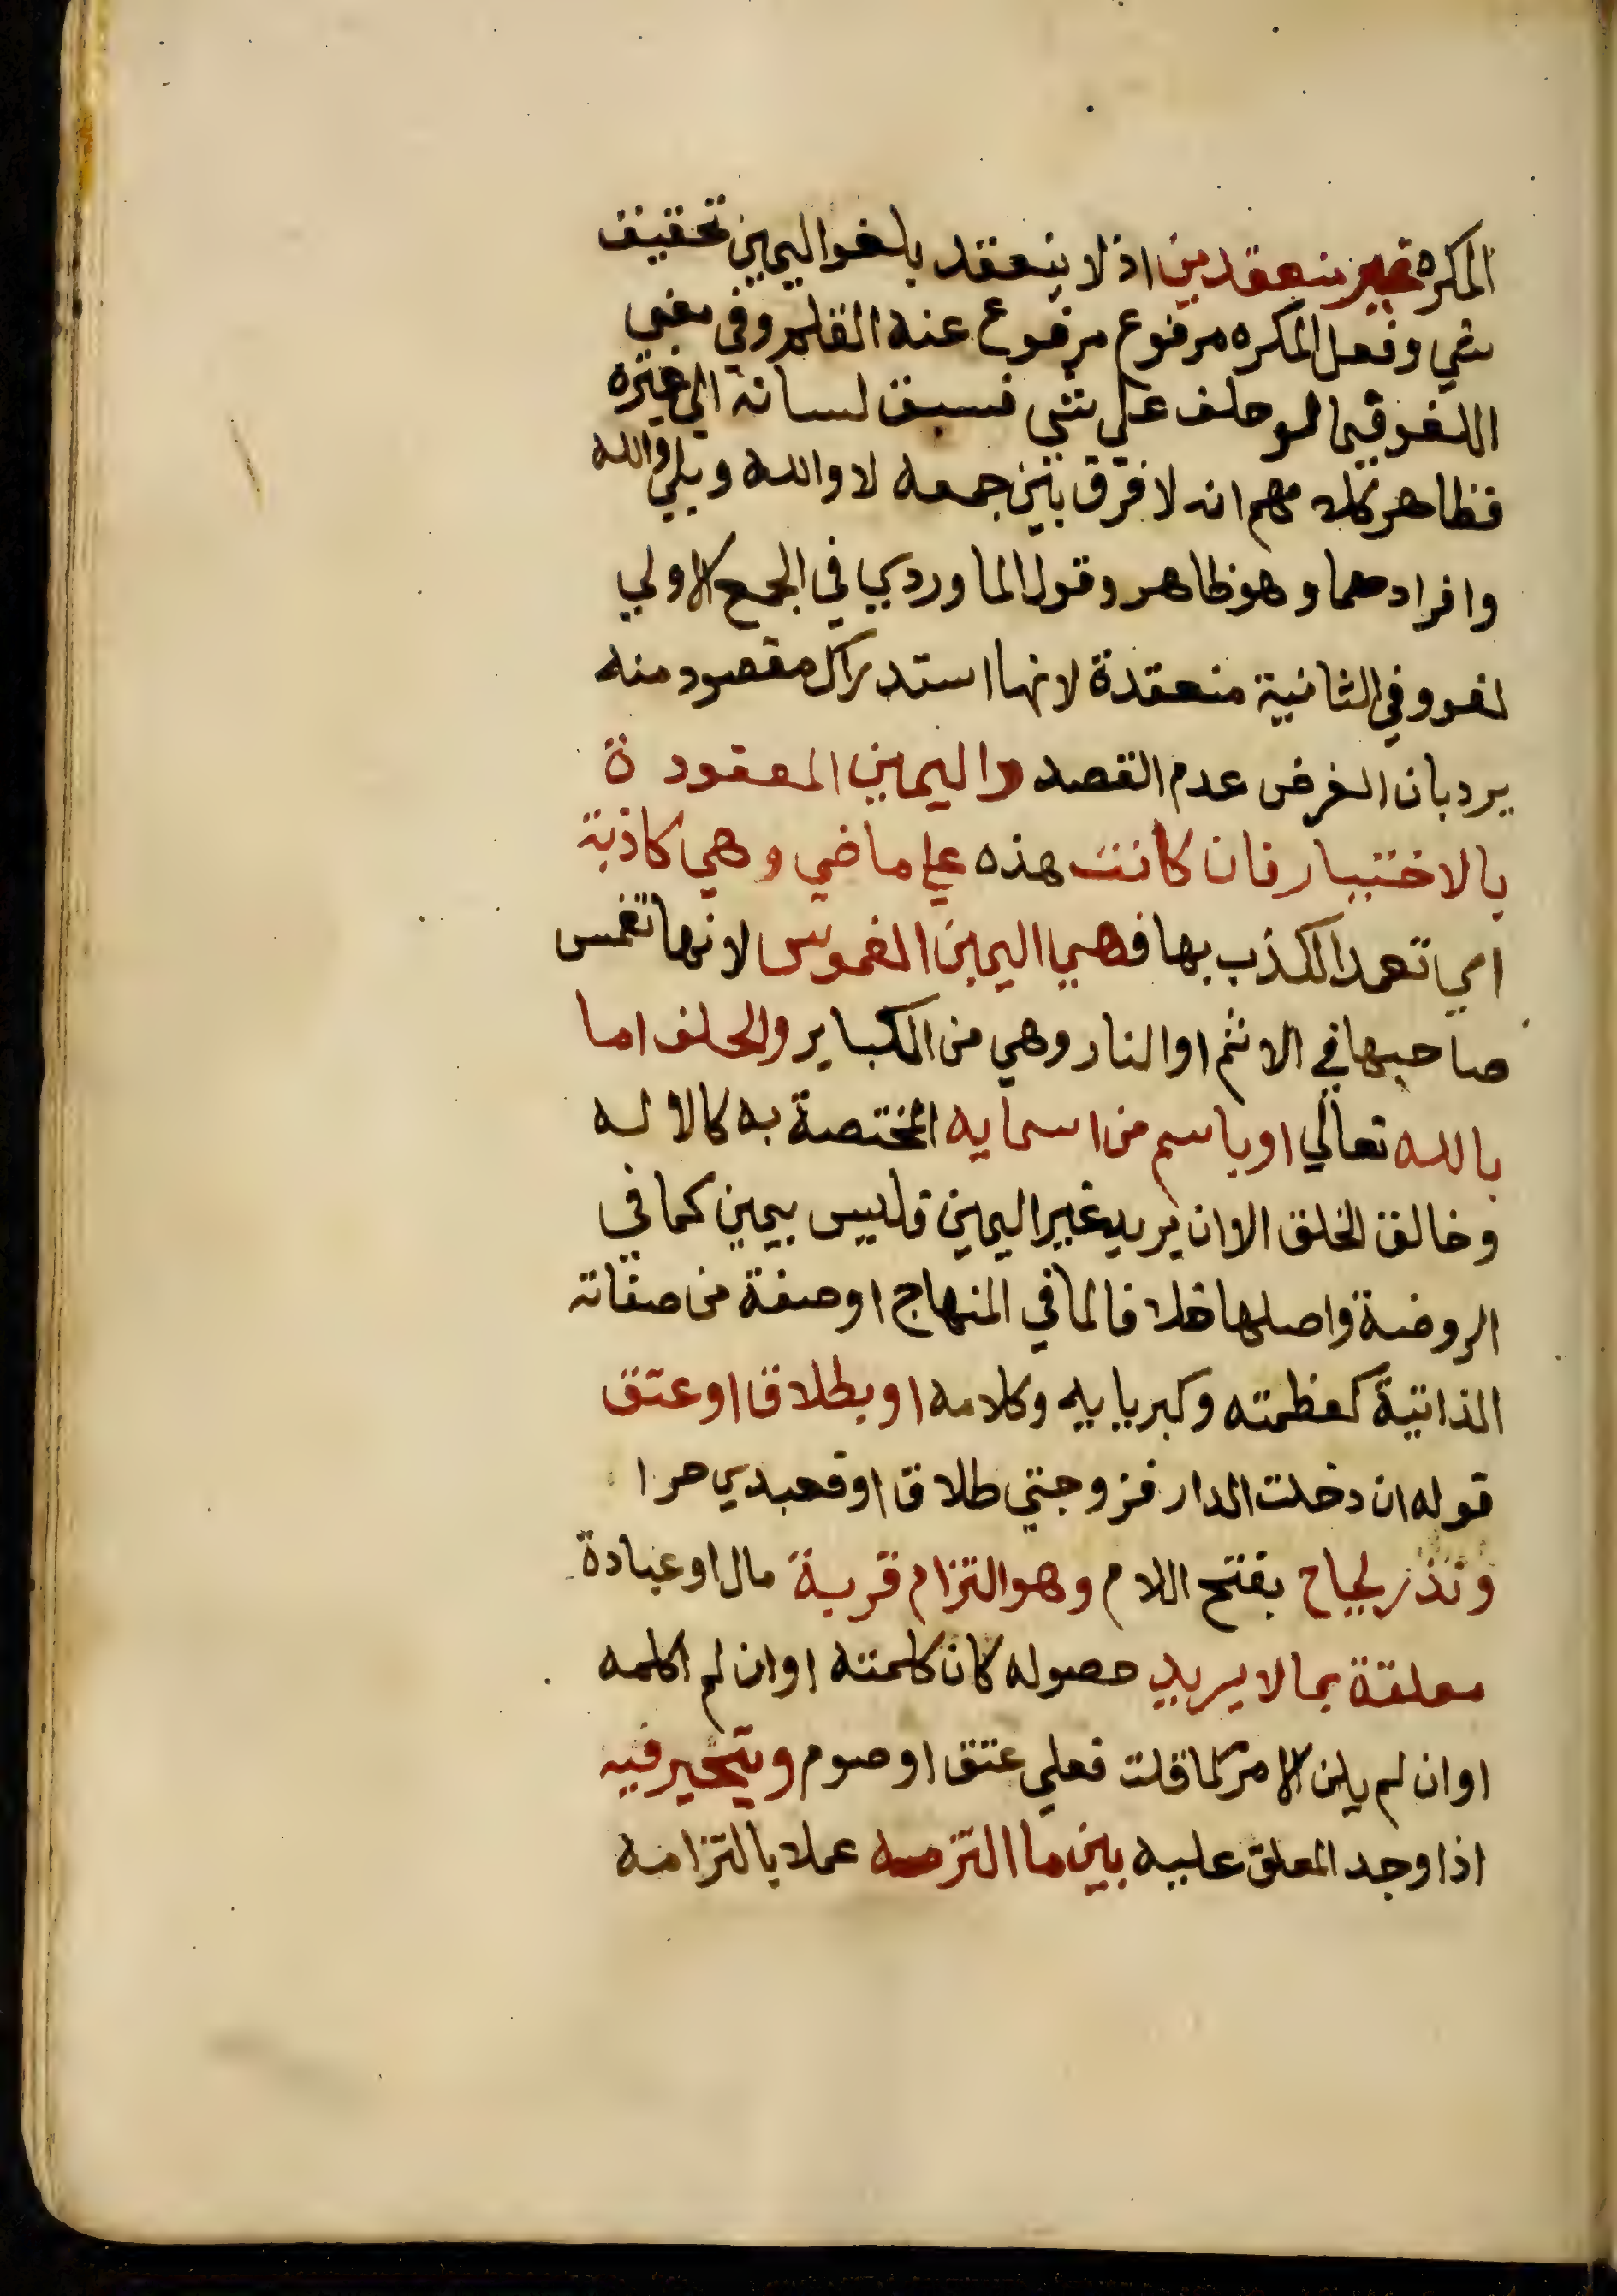 المكره غير منعقدين اذ لا ينعقد بلغو اليمين تحقيف
شي وفعل المكره مرفوع مرفوع عنه القلم وفي معني
اللغو فيما لو حلف علي شي فسبق لسانه الي غيره
فظاهر كلامهم انه لا فرق بين جمعه لا والله وبلي والله
وافرادهما وهو ظاهر وقول الماوردي في الجمع الاولي
لغو وفي الثانية منعقدة لانها استدراك مقصود منه
يرد بان الغرض عدم القصد واليمين المعقودة
بالاختيار فان كانت هذه علي ماضي وهي كاذبة
اي تعمد الكذب بها فهي اليمين الغموس لانها تغمس
صاحبها في الاثم او النار وهي من الكباير والحلف اما
بالله تعالي او باسم من اسمايه المختصة به كالاله
وخالق الخلق الا ان يريد غير اليمين فليس بيمين كما في
الروضة واصلها خلافا لما في المنهاج او صفة من صفاته
الذاتية كعظمته وكبريايه وكلامه او بطلاق او عتق
قوله ان دخلت الدار فزوجتي طلاق او فعبدي حرا
ونذر لجاج بفتح اللام وهو التزام قربة مال او عبادة
معلقة بما لا يريد حصوله كان كلمته او ان لم اكلمه
او ان لم يكن الامر كما قلت فعلي عتق او صوم ويتخير فيه
اذا وجد المعلق عليه بين ما التزمه عملا بالتزامه